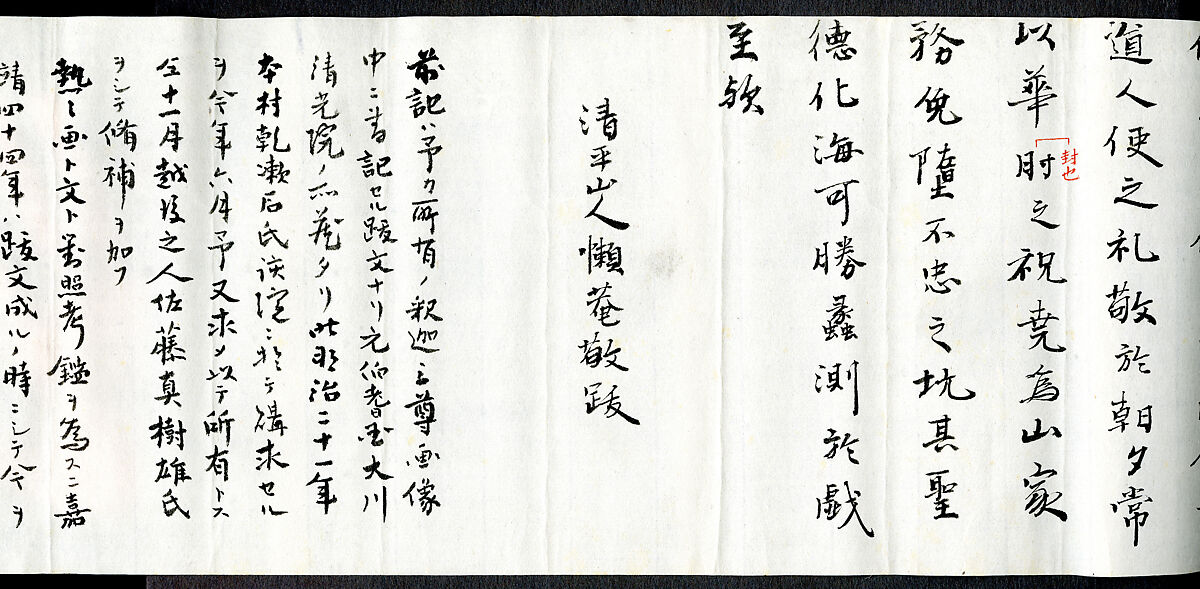 道人使之礼敬於朝夕常
以華肘之祝堯為山家
封也
務免墮不忠之坑其聖
德化海可勝蠡測於戯
至欤
清平山人懶菴敬跋
前記ハ予カ所有ノ釈迦三尊画像
中ニ書記セル跋文ナリ元伯耆国大川
清光院ノ所蔵タリ明治二十一年
本村乾漱石氏該院ニ於テ購求セル
ヲ今年六月予又求メ以テ所有トス
仝十一月越後之人佐藤真樹雄氏
ヲシテ脩補ヲ加フ
熟〻画ト文ト対照考鑑ヲ為スニ嘉
靖四十四年ハ跋文成ルノ時ニシテ今ヲ